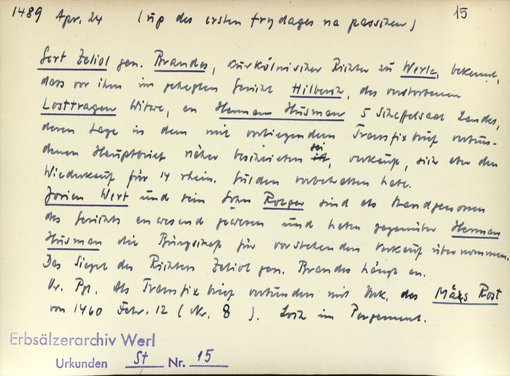 1489 Apr. 24 (up des ersten frydages na passchen) 15
Gert Zeliol gen. Brandes, kurkölnischer Richter zu Werle, bekennt,
dass vor ihm im gehegten Gericht Hilborch, des verstorbenen
Losttragen Witwe, an Herman Hüsman 5 Scheffelsaat Landes,
deren Lage in dem mit vorliegendem Transfixbrief verbun-
denen Hauptbrief näher beschrieben sei, verkauft, sich aber den
Wiederkauf für 14 rhein. Gulden vorbehalten habe.
Jorien Wert und sein Sohn Rotger sind als Standgenossen
des Gerichts anwesend gewesen und haben gegenüber Herman
Hüsman die Bürgschaft für vorstehenden Verkauf übernommen.
Das Siegel des Richters Zeliol gen. Brandes hängt an.
Or. Pgt. Als Transfixbrief verbunden mit Urk. des Máes Rost
von 1460 Febr. 12 (Nr. 8). Loch im Pergament.
Erbsälzerarchiv Werl
Urkunden St Nr. 15